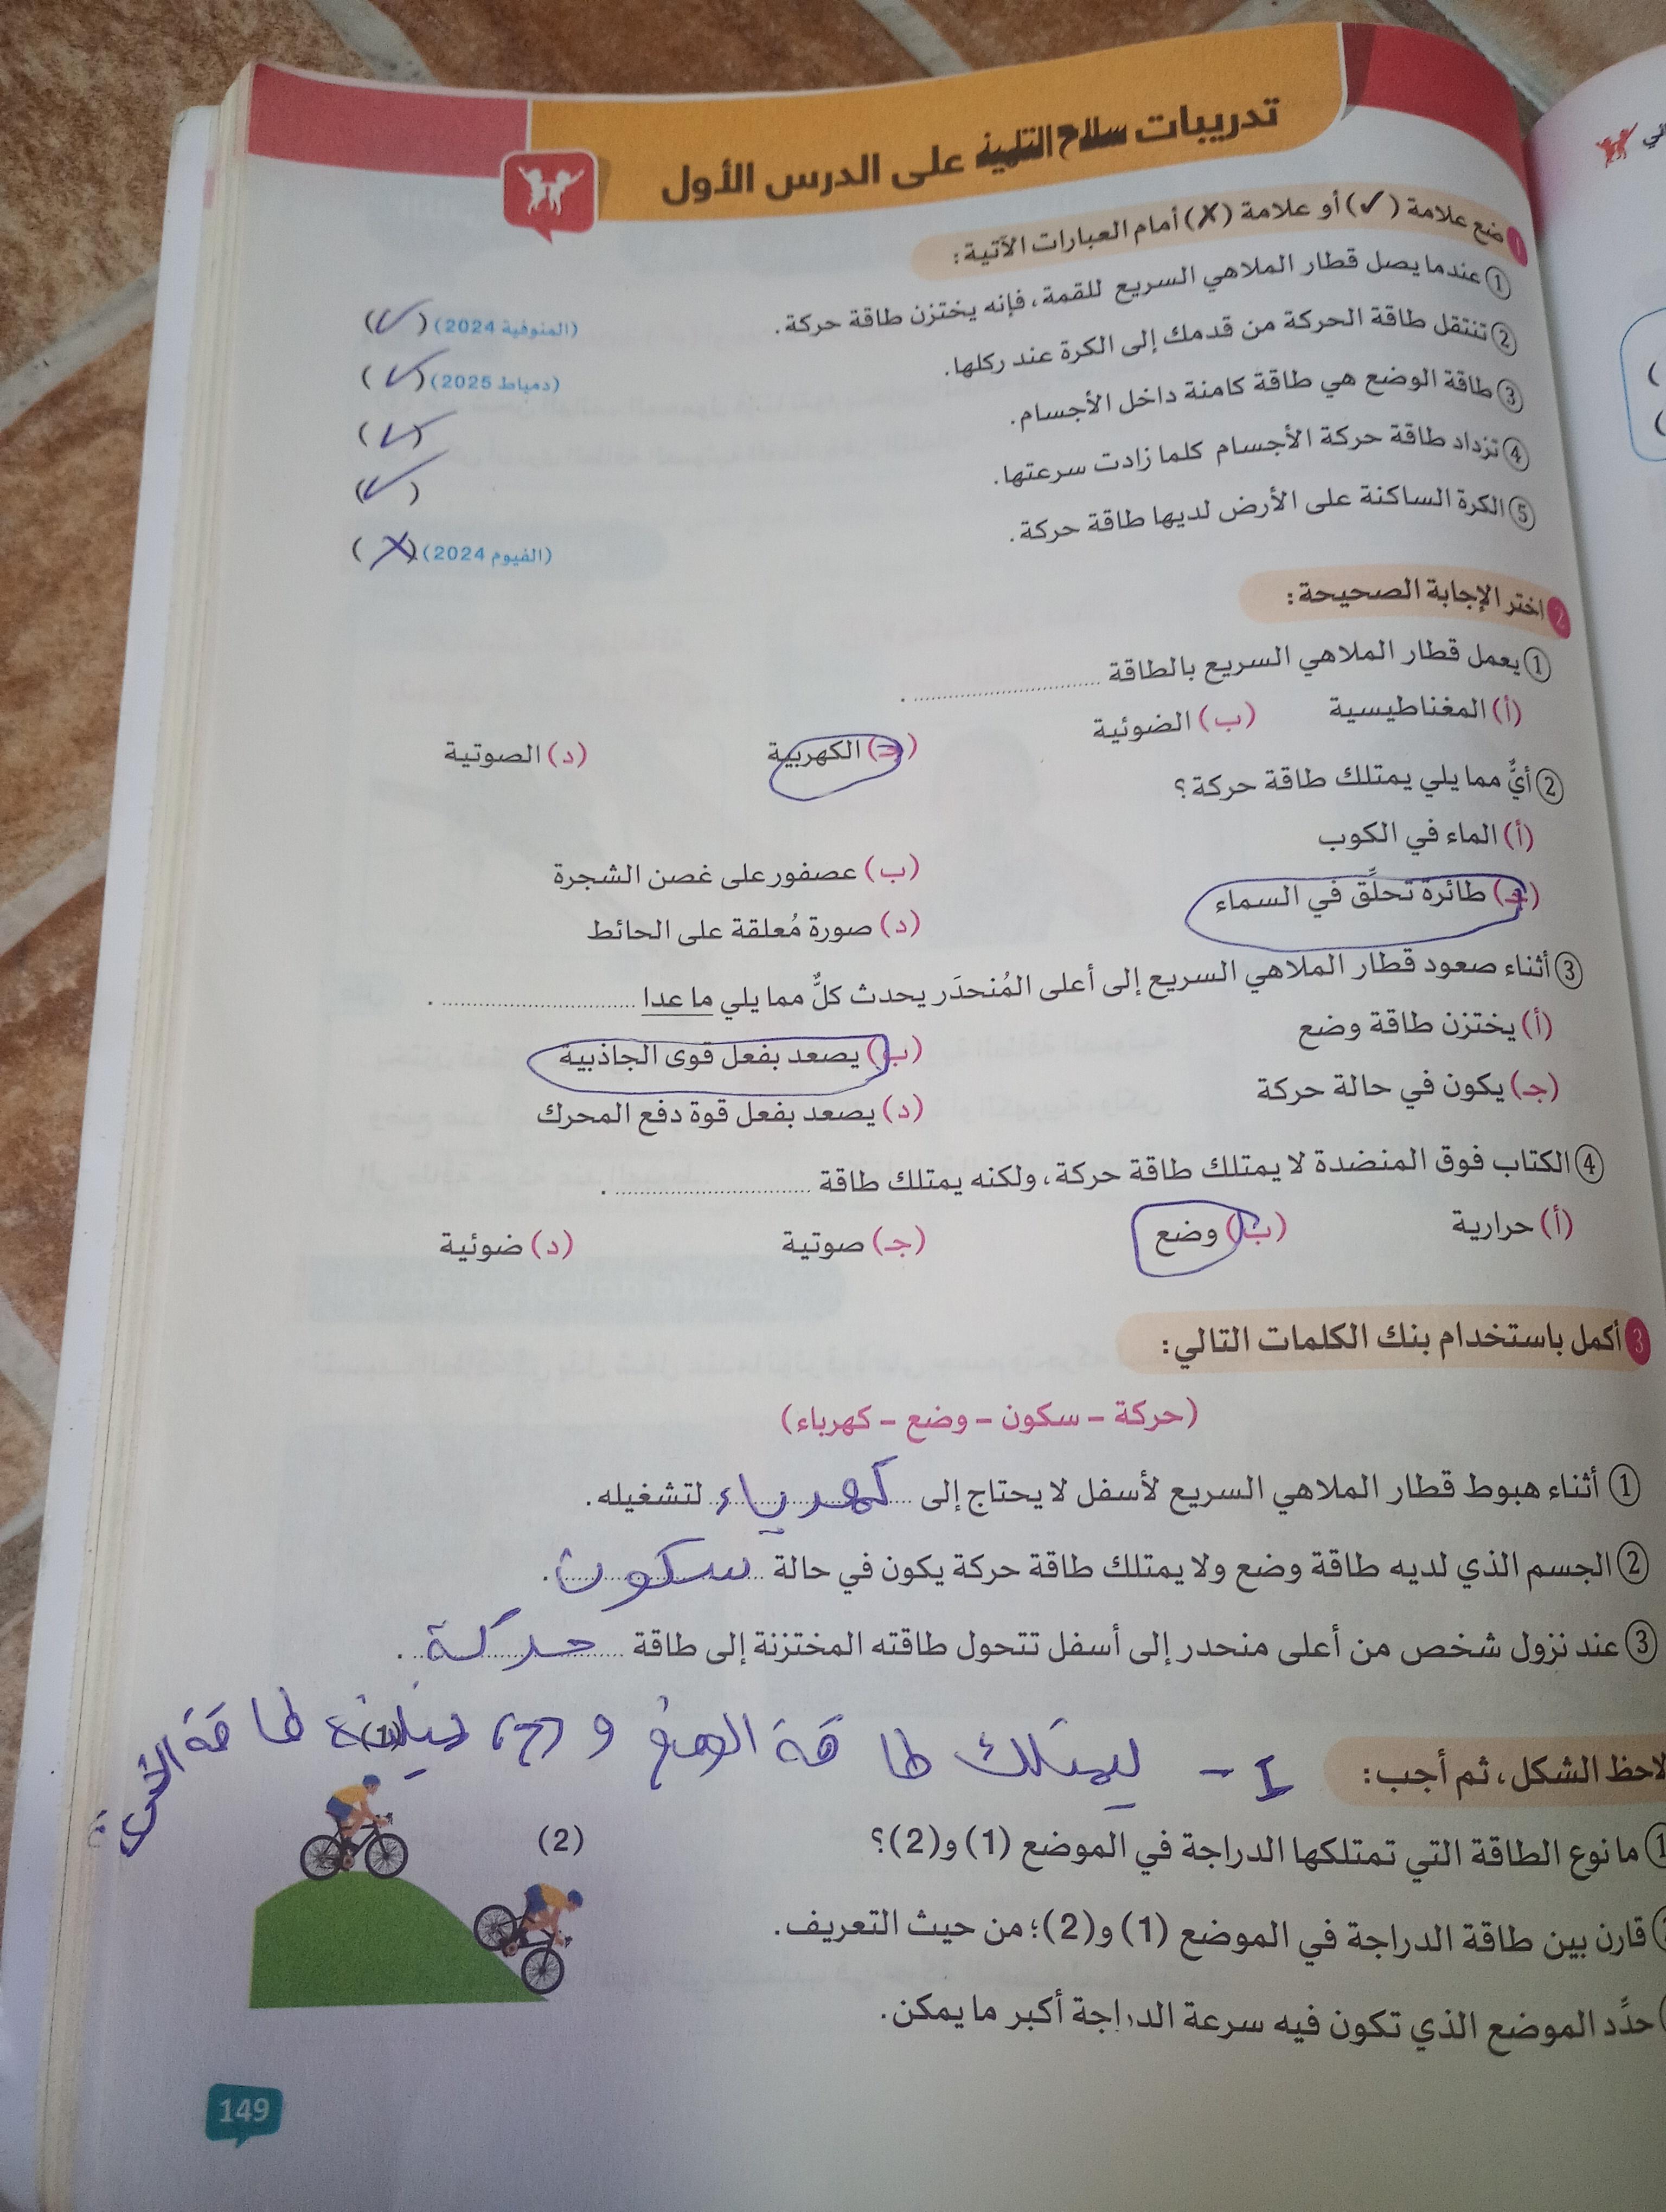 تدريبات سلاح التلميذ على الدرس الأول
1 ضع علامة (✓) أو علامة (✗) أمام العبارات الآتية:
① عندما يصل قطار الملاهي السريع للقمة، فإنه يختزن طاقة حركة. (المنوفية 2024) (✓)
② تنتقل طاقة الحركة من قدمك إلى الكرة عند ركلها. (دمياط 2025) (✓)
③ طاقة الوضع هي طاقة كامنة داخل الأجسام. (✓)
④ تزداد طاقة حركة الأجسام كلما زادت سرعتها. (✓)
⑤ الكرة الساكنة على الأرض لديها طاقة حركة. (الفيوم 2024) (✗)
2 اختر الإجابة الصحيحة:
① يعمل قطار الملاهي السريع بالطاقة .............................. .
(أ) المغناطيسية (ب) الضوئية (جـ) الكهربية (د) الصوتية
② أيٌّ مما يلي يمتلك طاقة حركة؟
(أ) الماء في الكوب (ب) عصفور على غصن الشجرة
(جـ) طائرة تحلِّق في السماء (د) صورة مُعلقة على الحائط
③ أثناء صعود قطار الملاهي السريع إلى أعلى المُنحدَر يحدث كلٌّ مما يلي ما عدا .............................. .
(أ) يختزن طاقة وضع (ب) يصعد بفعل قوى الجاذبية
(جـ) يكون في حالة حركة (د) يصعد بفعل قوة دفع المحرك
④ الكتاب فوق المنضدة لا يمتلك طاقة حركة، ولكنه يمتلك طاقة .............................. .
(أ) حرارية (ب) وضع (جـ) صوتية (د) ضوئية
3 أكمل باستخدام بنك الكلمات التالي:
(حركة – سكون – وضع – كهرباء)
① أثناء هبوط قطار الملاهي السريع لأسفل لا يحتاج إلى كهرباء لتشغيله.
② الجسم الذي لديه طاقة وضع ولا يمتلك طاقة حركة يكون في حالة سكون.
③ عند نزول شخص من أعلى منحدر إلى أسفل تتحول طاقته المختزنة إلى طاقة حركة.
1 - يمتلك طاقة الوضع و (2) طاقة
لاحظ الشكل، ثم أجب:
1 ما نوع الطاقة التي تمتلكها الدراجة في الموضع (1) و(2)؟
قارن بين طاقة الدراجة في الموضع (1) و(2)؛ من حيث التعريف.
حدِّد الموضع الذي تكون فيه سرعة الدراجة أكبر ما يمكن.
(1)
(2)
149